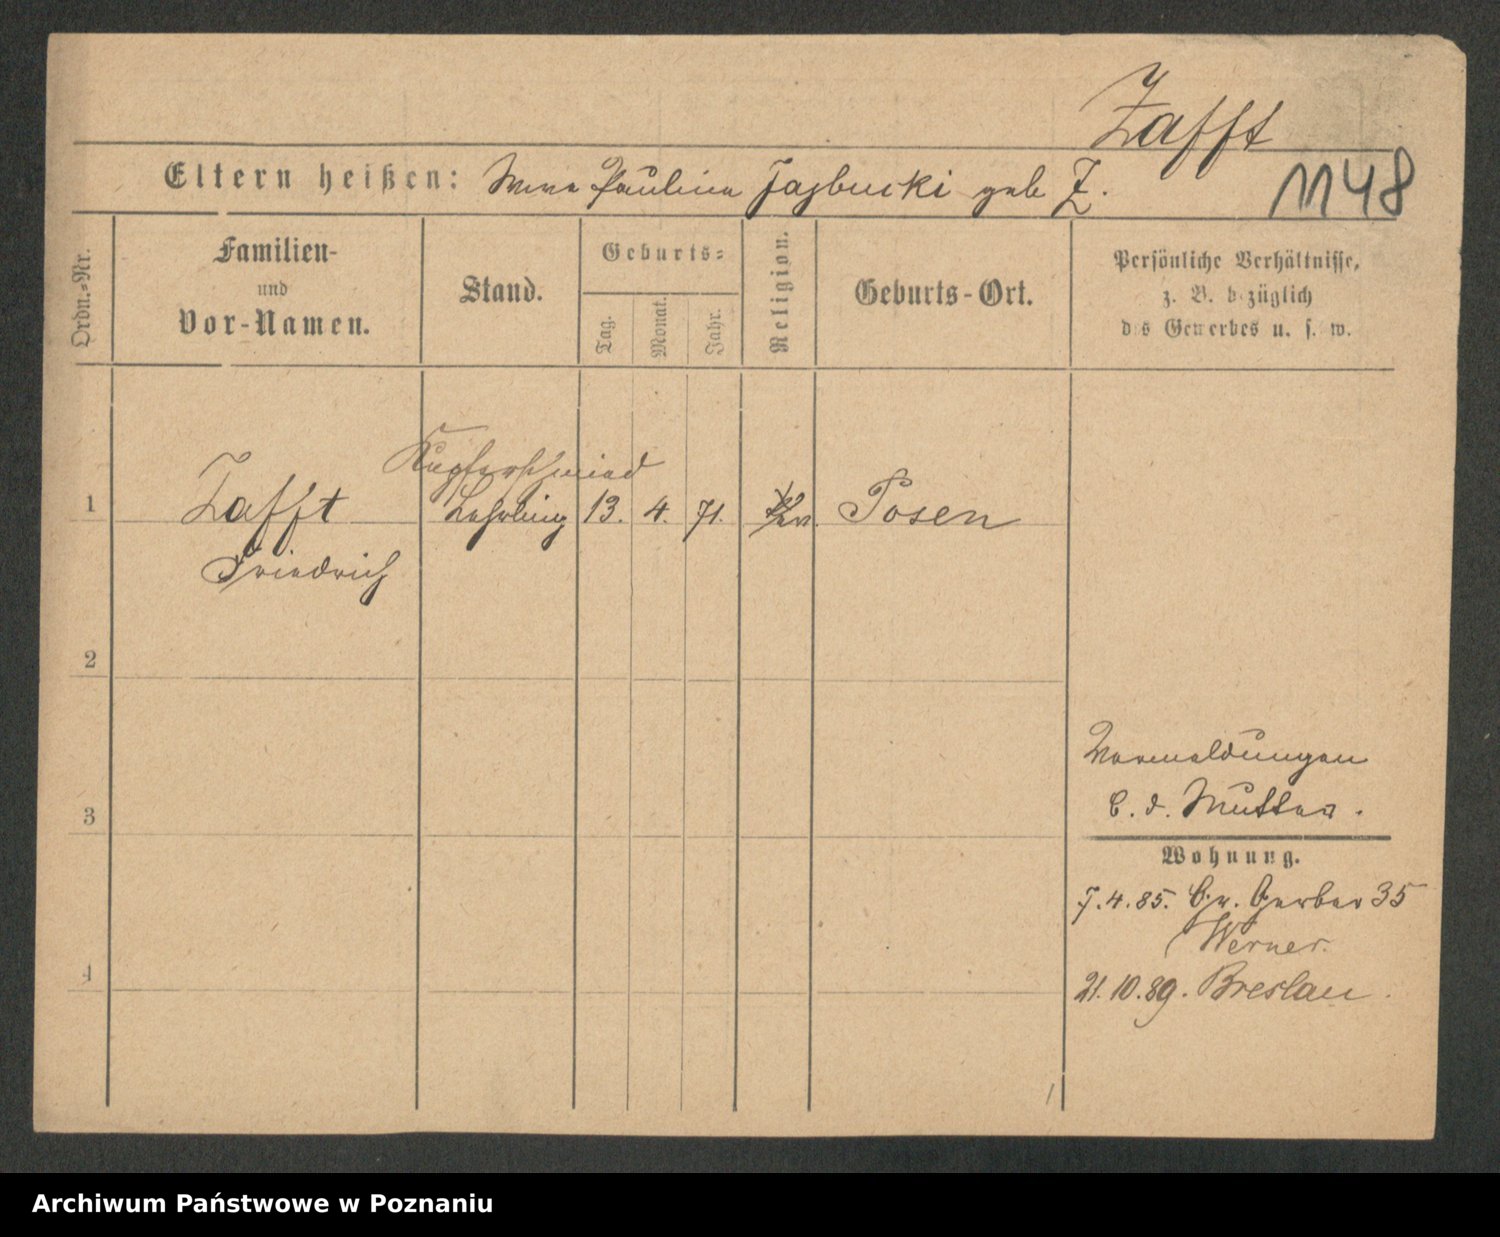 Zafft
Eltern heißen: Pauline geb Z.
1148
Ordn.-Nr.
Familien-
und
Vor-Namen.
Stand.
Geburts-
Tag.
Monat.
Jahr.
Religion.
Geburts-Ort.
Persönliche Verhältnisse,
z. B. bezüglich
des Gewerbes u. s. w.
Kupferschmied
1 Zafft Lehrling 13. 4. 71. Posen
Friedrich
2
3
4
Vormeldungen
b. d. Mutter.
Wohnung.
7.4.85. Gr. Gerber 35
Werner.
21.10.89. Breslau.
Archiwum Państwowe w Poznaniu